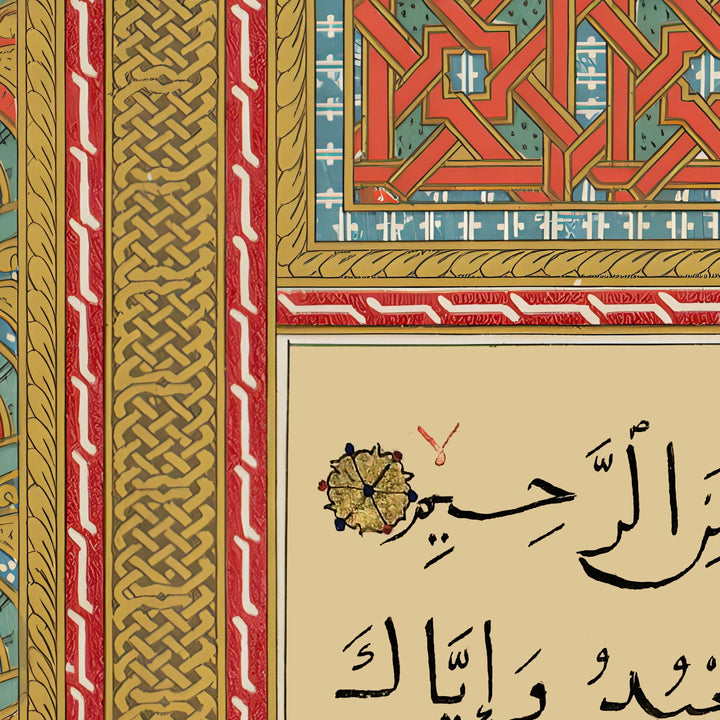 الرَّحِيمِ
نَعْبُدُ وَإِيَّاكَ